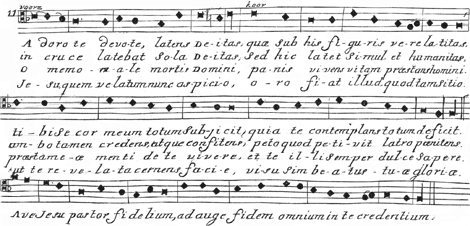 voorz koor
11
A doro te devote, latens De-itas, quæ sub his fi-gu-ris ve-re la-titas.
in cruce latebat so-la De-itas, sed hic latet si-mul et humanitas.
O memo ri-a-le mortis Domini, pa-nis vivens vitam præstans homini.
Je-su quem velatum nunc as picio, o-ro fi-at illud quod tam sitio.
ti-bi se cor meum totum sub-ji-cit, quia te contemplans totum deficit.
am-bo tamen credens, atque confitens, peto quod pe-ti-vit latro pænitens.
præsta me-æ menti de te vivere, et te il-li semper dulce sapere.
ut te re-ve-la-ta cernens fa-ci-e, vi-su sim be-a-tus tu-æ gloriæ.
Ave Jesu pastor fidelium, ad auge fidem omnium in te credentium.